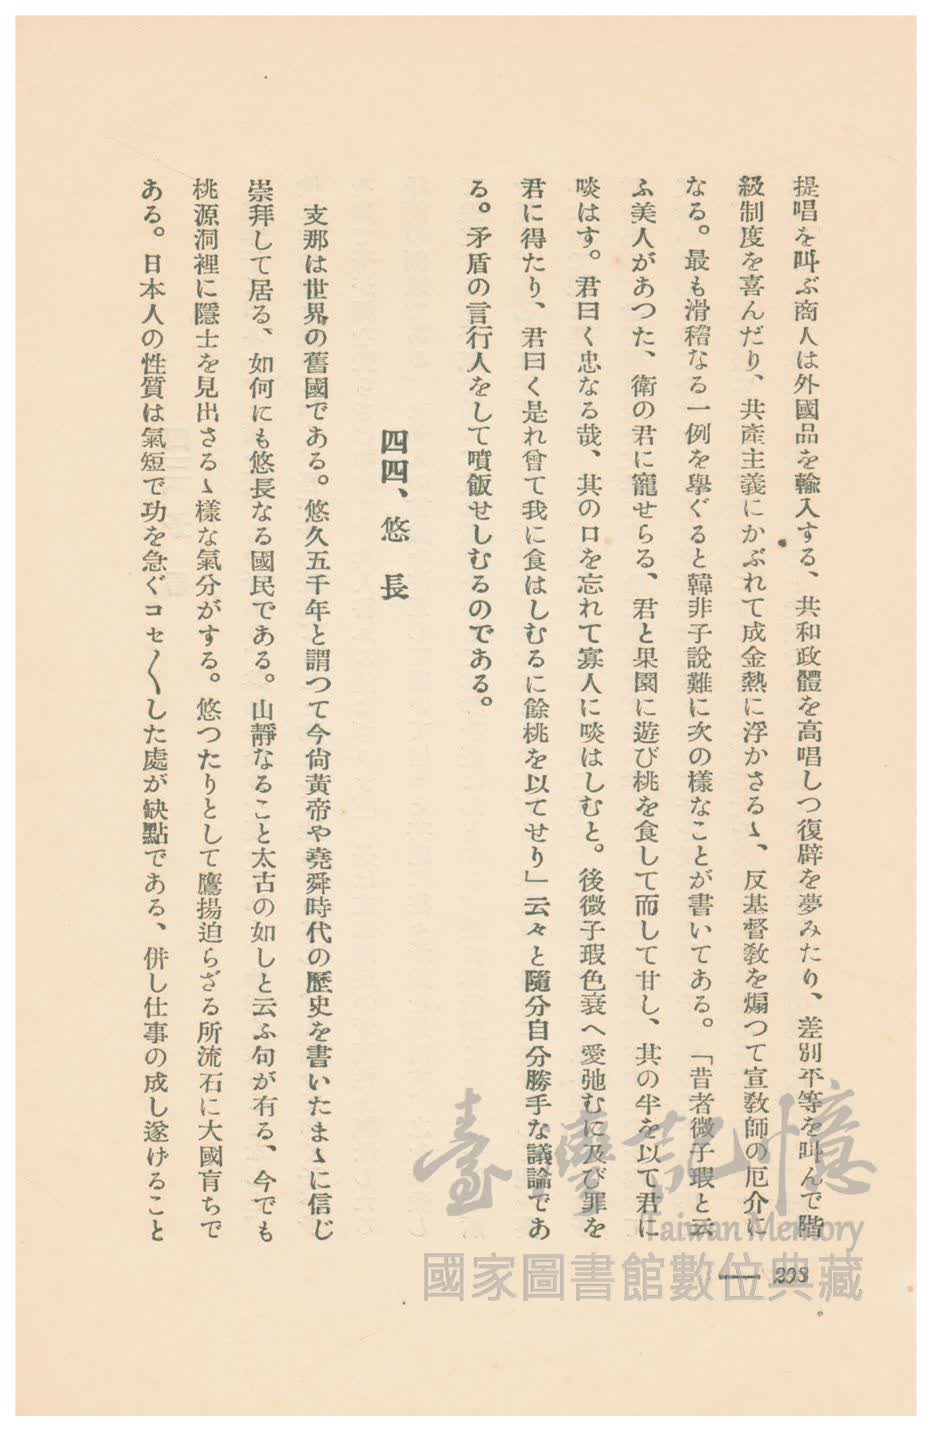 提唱を叫ぶ商人は外國品を輸入する、共和政體を高唱しつ復辟を夢みたり、差別平等を叫んで階
級制度を喜んだり、共產主義にかぶれて成金熱に浮かさるゝ、反基督敎を煽つて宣敎師の厄介に
なる。最も滑稽なる一例を擧ぐると韓非子說難に次の樣なことが書いてある。「昔者微子瑕と云
ふ美人があつた、衛の君に寵せらる、君と果園に遊び桃を食して而して甘し、其の半を以て君に
啖はす。君曰く忠なる哉、其の口を忘れて寡人に啖はしむと。後微子瑕色衰へ愛弛むに及び罪を
君に得たり、君曰く是れ曾て我に食はしむるに餘桃を以てせり」云々と隨分自分勝手な議論であ
る。矛盾の言行人をして噴飯せしむるのである。
四四、悠長
支那は世界の舊國である。悠久五千年と謂つて今尙黃帝や堯舜時代の歷史を書いたまゝに信じ
崇拜して居る、如何にも悠長なる國民である。山靜なること太古の如しと云ふ句が有る、今でも
桃源洞裡に隱士を見出さるゝ樣な氣分がする。悠つたりとして鷹揚迫らざる所流石に大國育ちで
ある。日本人の性質は氣短で功を急ぐコセ〱した處が缺點である、併し仕事の成し遂げること
— 298
臺灣記憶
Taiwan Memory
國家圖書館數位典藏